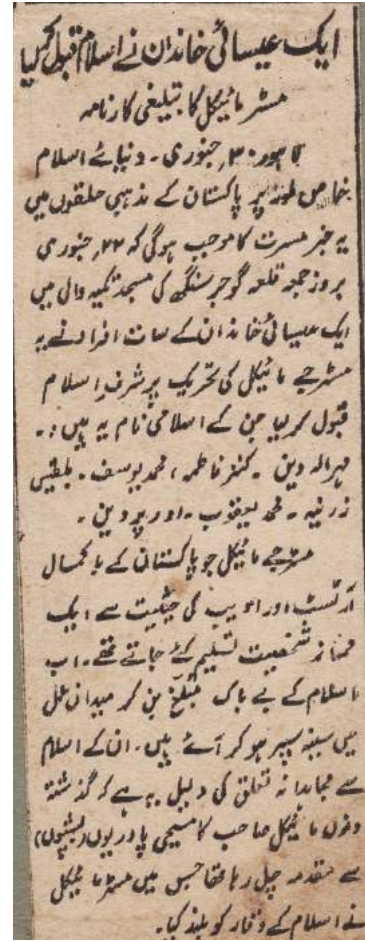 ایک عیسائی خاندان نے اسلام قبول کر لیا
مسٹر مائیکل کا تبلیغی کارنامہ
لاہور ۳۰؍ جنوری ۔ دنیائے اسلام
خاص طور پر پاکستان کے مذہبی حلقوں میں
یہ خبر مسرت کا موجب ہوگی کہ ۲۲؍ جنوری
بروز جمعہ قلعہ گوجر سنگھ کی مسجد تکیہ والی میں
ایک عیسائی خاندان کے سات افراد نے
مسٹر جے مائیکل کی تحریک پر شرف اسلام
قبول کر لیا جن کے اسلامی نام یہ ہیں :۔
مہر الہ دین ۔ کنیز فاطمہ ، محمد یوسف ۔ بلقیس
زرینہ ۔ محمد یعقوب ۔ اور پروین ۔
مسٹر جے مائیکل جو پاکستان کے باکمال
آرٹسٹ اور ادیب کی حیثیت سے ایک
ممتاز شخصیت تسلیم کئے جاتے تھے ۔ اب
اسلام کے بے باک مبلغ بن کر میدان عمل
میں سینہ سپر ہو کر آئے ہیں ۔ ان کے اسلام
سے مجاہدانہ تعلق کی دلیل یہ ہے کہ گذشتہ
دنوں مائیکل صاحب کا مسیحی پادریوں (بشپوں)
سے مقدمہ چل رہا تھا جس میں مسٹر مائیکل
نے اسلام کے وقار کو بلند کیا ۔